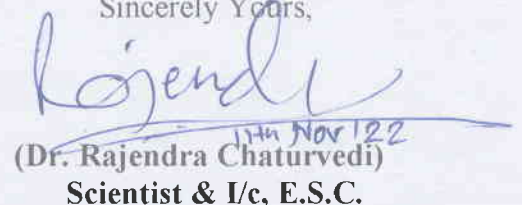 Sincerely Yours,
Rajend
11th Nov'22
(Dr. Rajendra Chaturvedi)
Scientist & I/c, E.S.C.